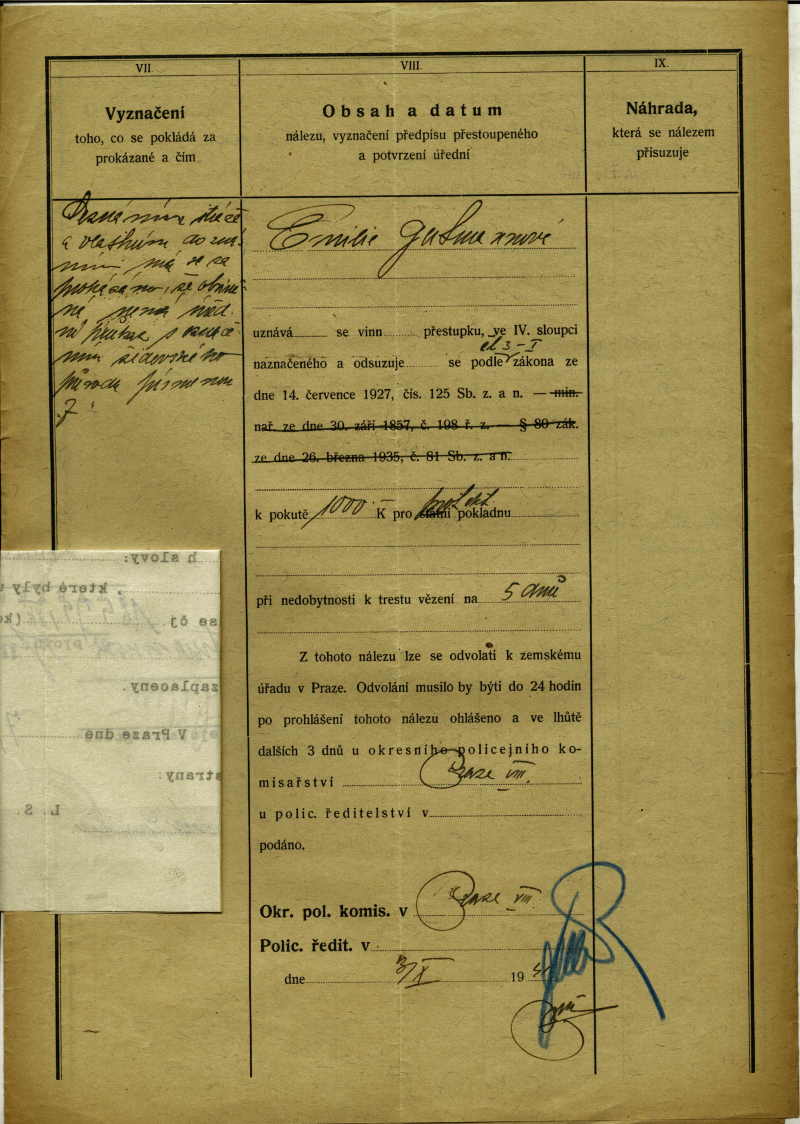 VII.
Vyznačení
toho, co se pokládá za
prokázané a čím
VIII.
Obsah a datum
nálezu, vyznačení předpisu přestoupeného
a potvrzení úřední
IX.
Náhrada,
která se nálezem
přisuzuje
a vlastním dozná-
má se za
prokázáno, že obvině-
ná nemá
průkaz s označe-
ním židovského
původu písmenou
J.
Emilie
uznává se vinn přestupku, ve IV. sloupci
čl 3-I
naznačeného a odsuzuje se podle zákona ze
dne 14. července 1927, čís. 125 Sb. z. a n. — min.
nař. ze dne 30. září 1857, č. 198 ř. z. — § 80 zák.
ze dne 26. března 1935, č. 81 Sb. z. a n.
k pokutě 1000.- K pro státní pokladnu
při nedobytnosti k trestu vězení na 5 dnů
Z tohoto nálezu lze se odvolati k zemskému
úřadu v Praze. Odvolání musilo by býti do 24 hodin
po prohlášení tohoto nálezu ohlášeno a ve lhůtě
dalších 3 dnů u okresního policejního ko-
misařství Praze VIII.
u polic. ředitelství v
podáno.
Okr. pol. komis. v Praze VIII.
Polic. ředit. v
dne /X 19
h slovy:
, které byly
se čj.
zaplaceny.
V Praze dne
strany:
L. S.